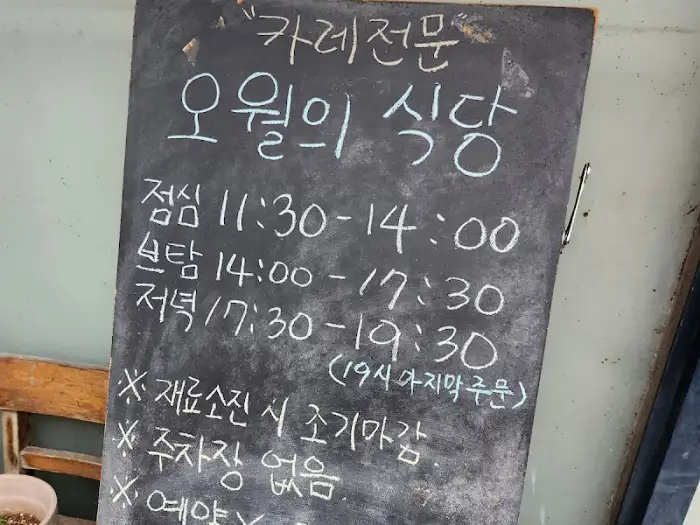 "카레전문"
오월의 식당
점심 11:30-14:00
브탐 14:00-17:30
저녁 17:30-19:30
(19시 마지막 주문)
※ 재료소진 시 조기마감.
※ 주차장 없음.
※ 예약 X